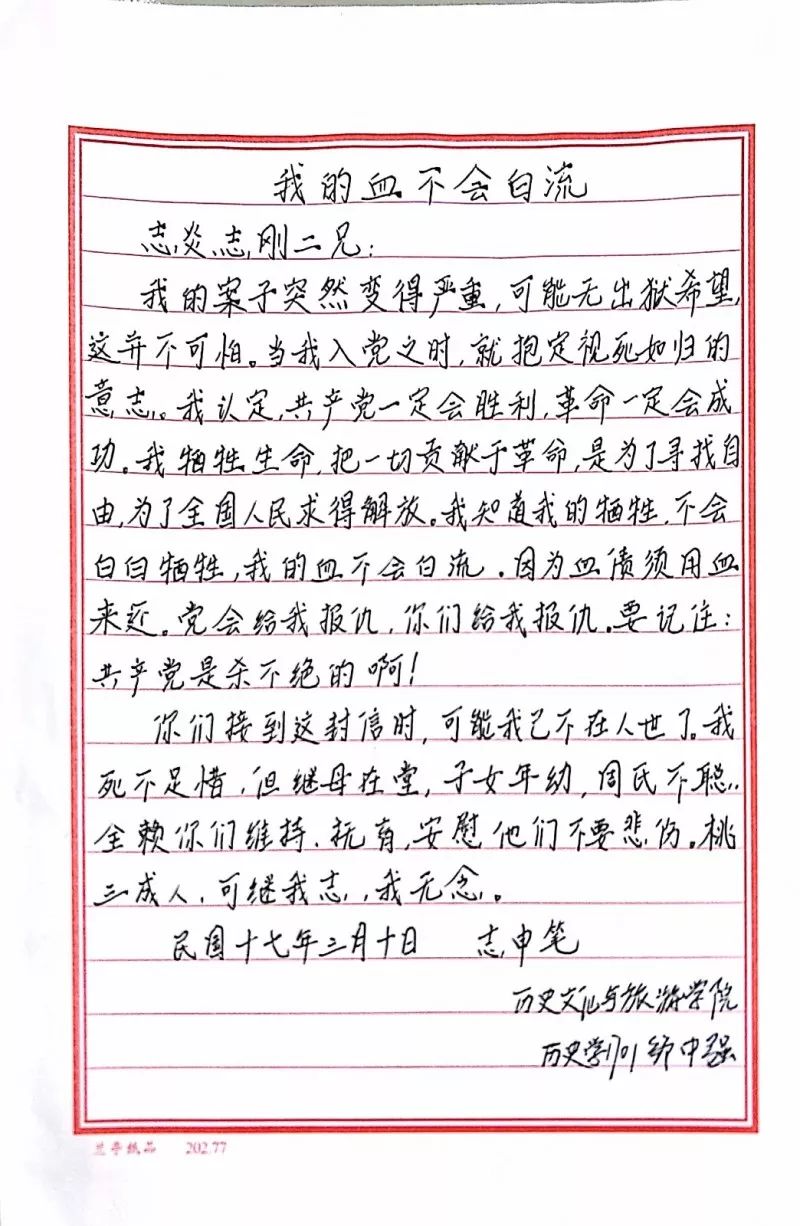 我的血不会白流
志炎志刚二兄:
我的案子突然变得严重,可能无出狱希望,
这并不可怕。当我入党之时,就抱定视死如归的
意志。我认定,共产党一定会胜利,革命一定会成
功。我牺牲生命,把一切贡献于革命,是为了寻找自
由,为了全国人民求得解放。我知道我的牺牲,不会
白白牺牲,我的血不会白流。因为血债须用血
来还。党会给我报仇,你们给我报仇。要记住:
共产党是杀不绝的啊!
你们接到这封信时,可能我已不在人世了。我
死不足惜,但继母在堂,子女年幼,周氏不聪,
全赖你们维持、抚育,安慰他们不要悲伤。桃
三成人,可继我志,我无念。
民国十七年三月十日 志申笔
历史文化与旅游学院
历史学 中强
兰亭纸品 202.77